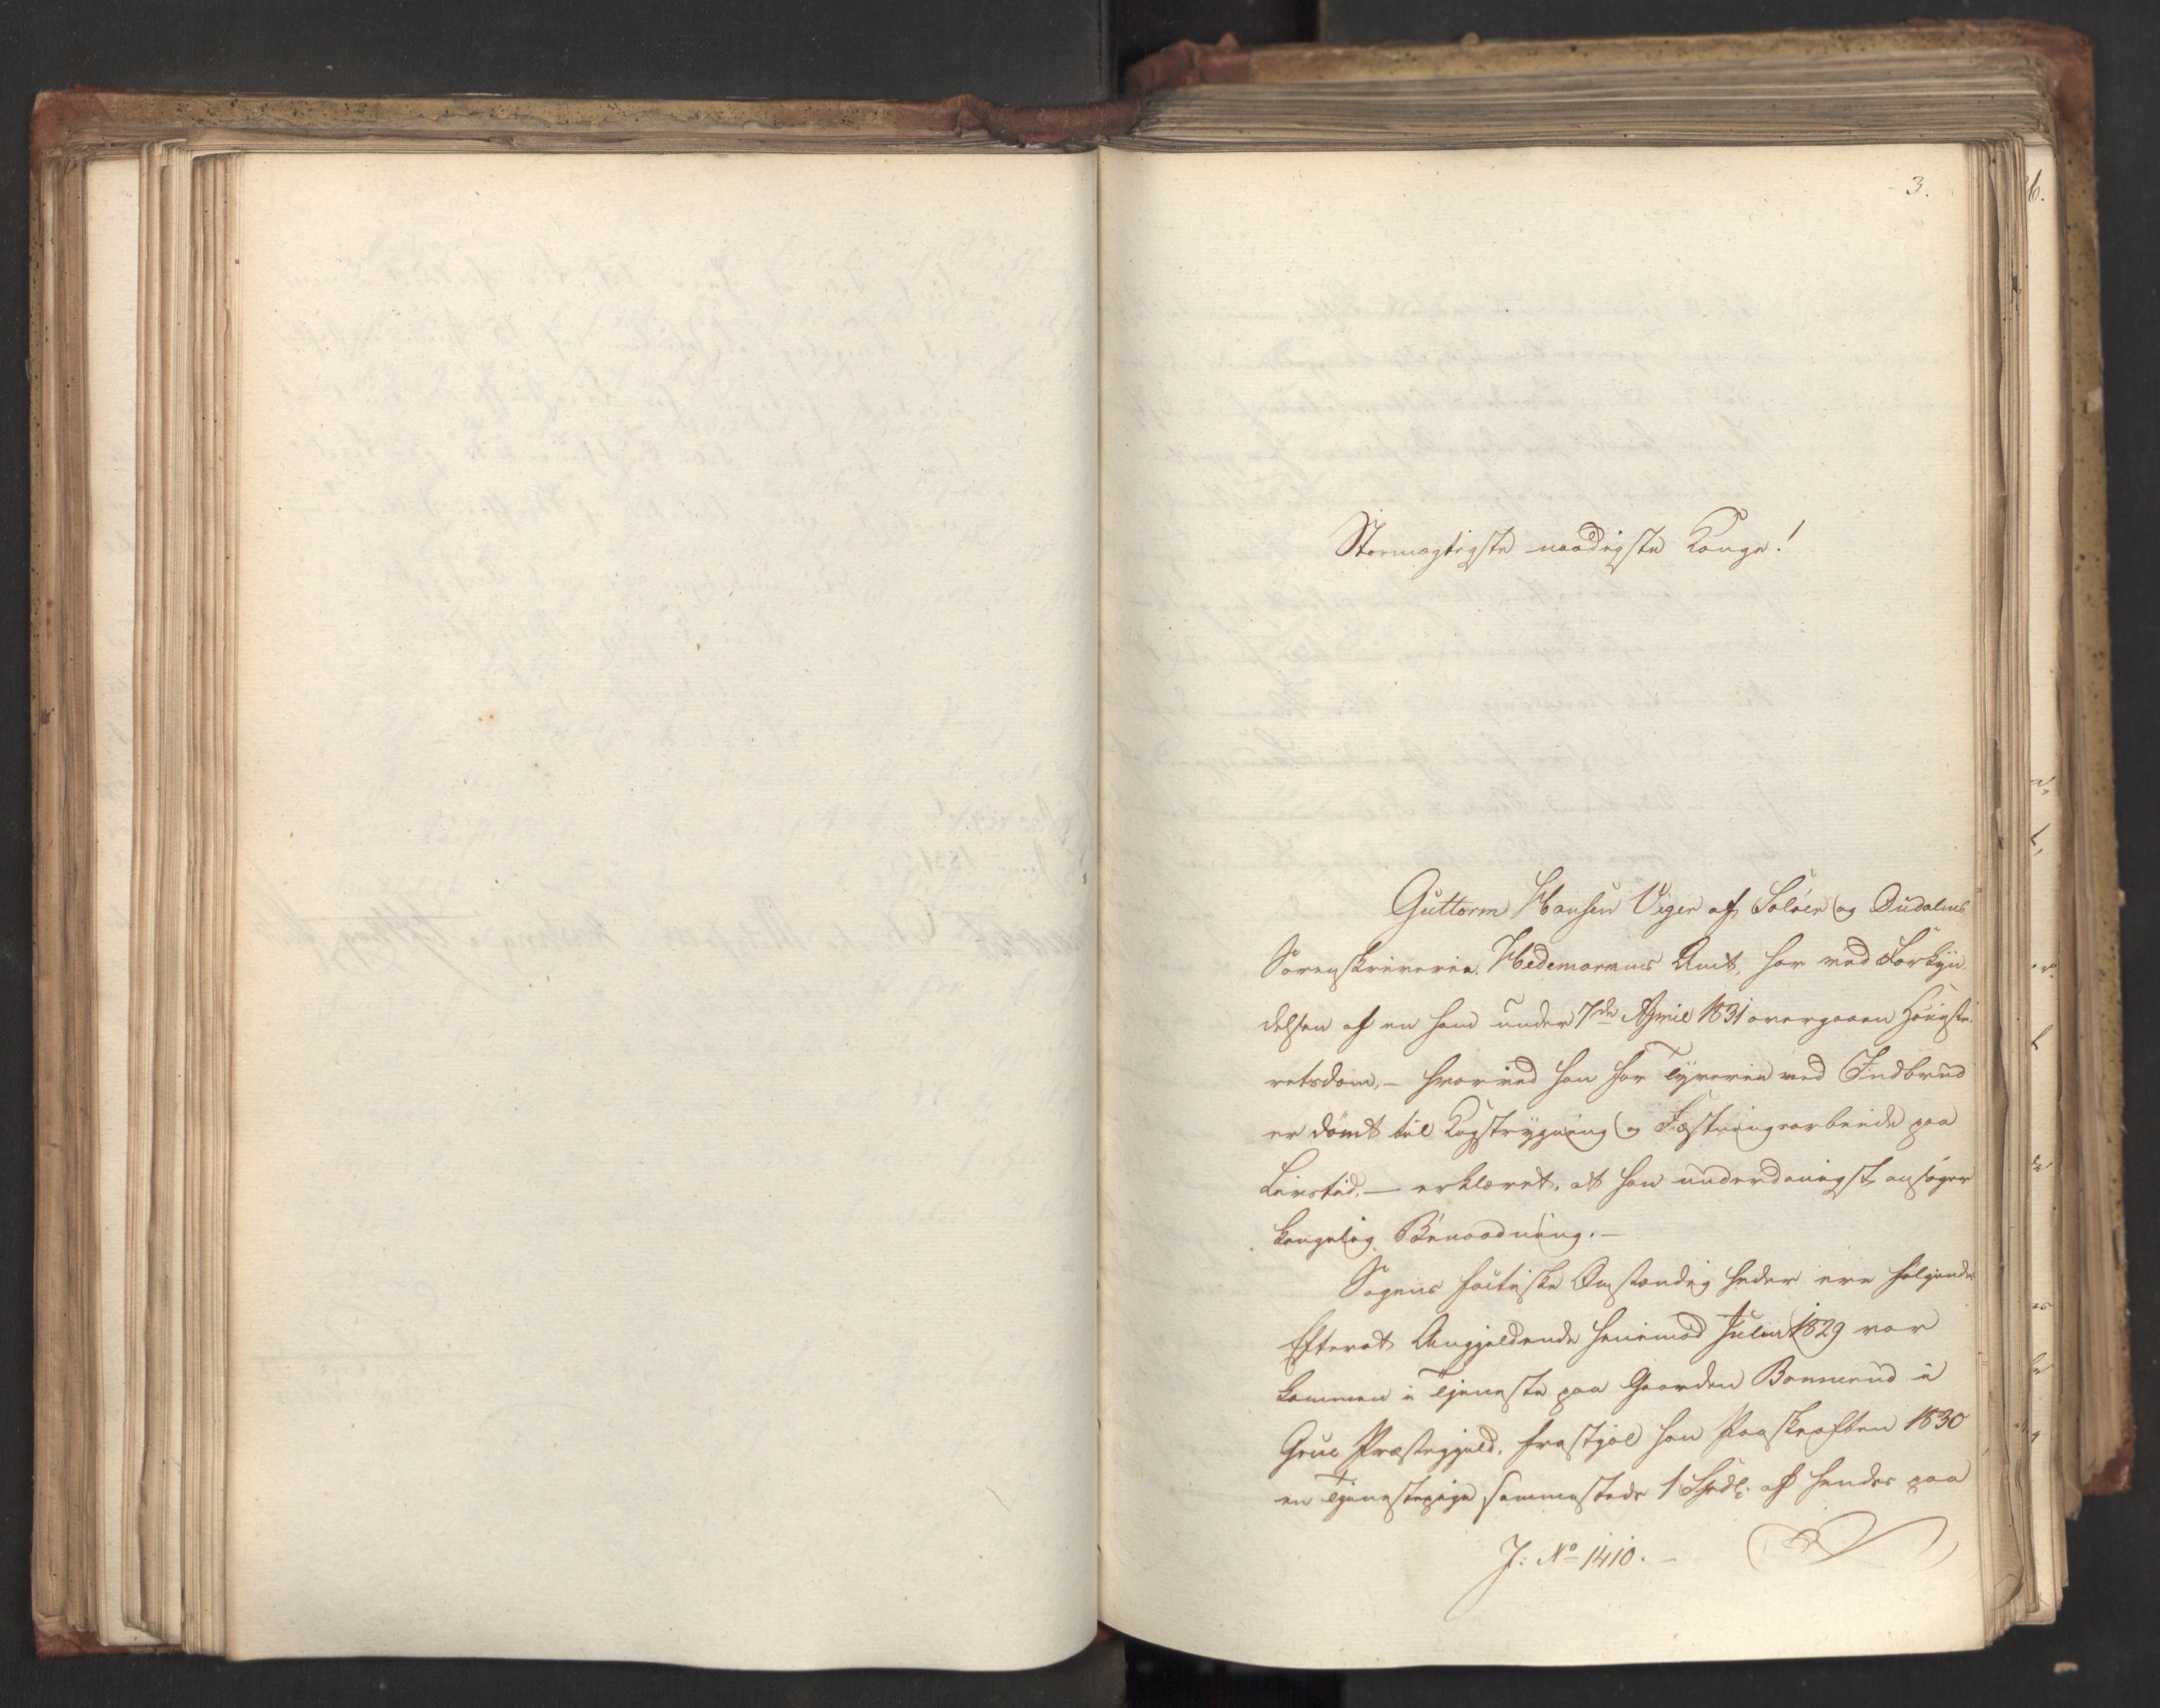 3.
Stormægtigste naadigste Konge!
Guttorm Hansen Viger af Soløer og Oudalens
Sorenskriverie, Hedemarkens Amt, har ved Forkyn
delsen af en ham under 7de April 1831 overgaaen Høieste
retsdom, - hvorved han for Tyverie med Indbrud
er dømt til Kagstrygning og Fæstningsarbeide paa
Livstid, - erklæret, at han underdanigst ansøger
kongelig Benaadning. -
Sagens factiske Omstændigheder ere følgende
Efterat Angjeldende henimod Julen 1829 var
kommen i Tjeneste paa Gaarden Bonnerud i
Grue Præstegjeld, frastjal han Paaskeaften 1830
en Tjenestepige sammesteds 1 Spdl: af hendes paa
J: No 1410. -